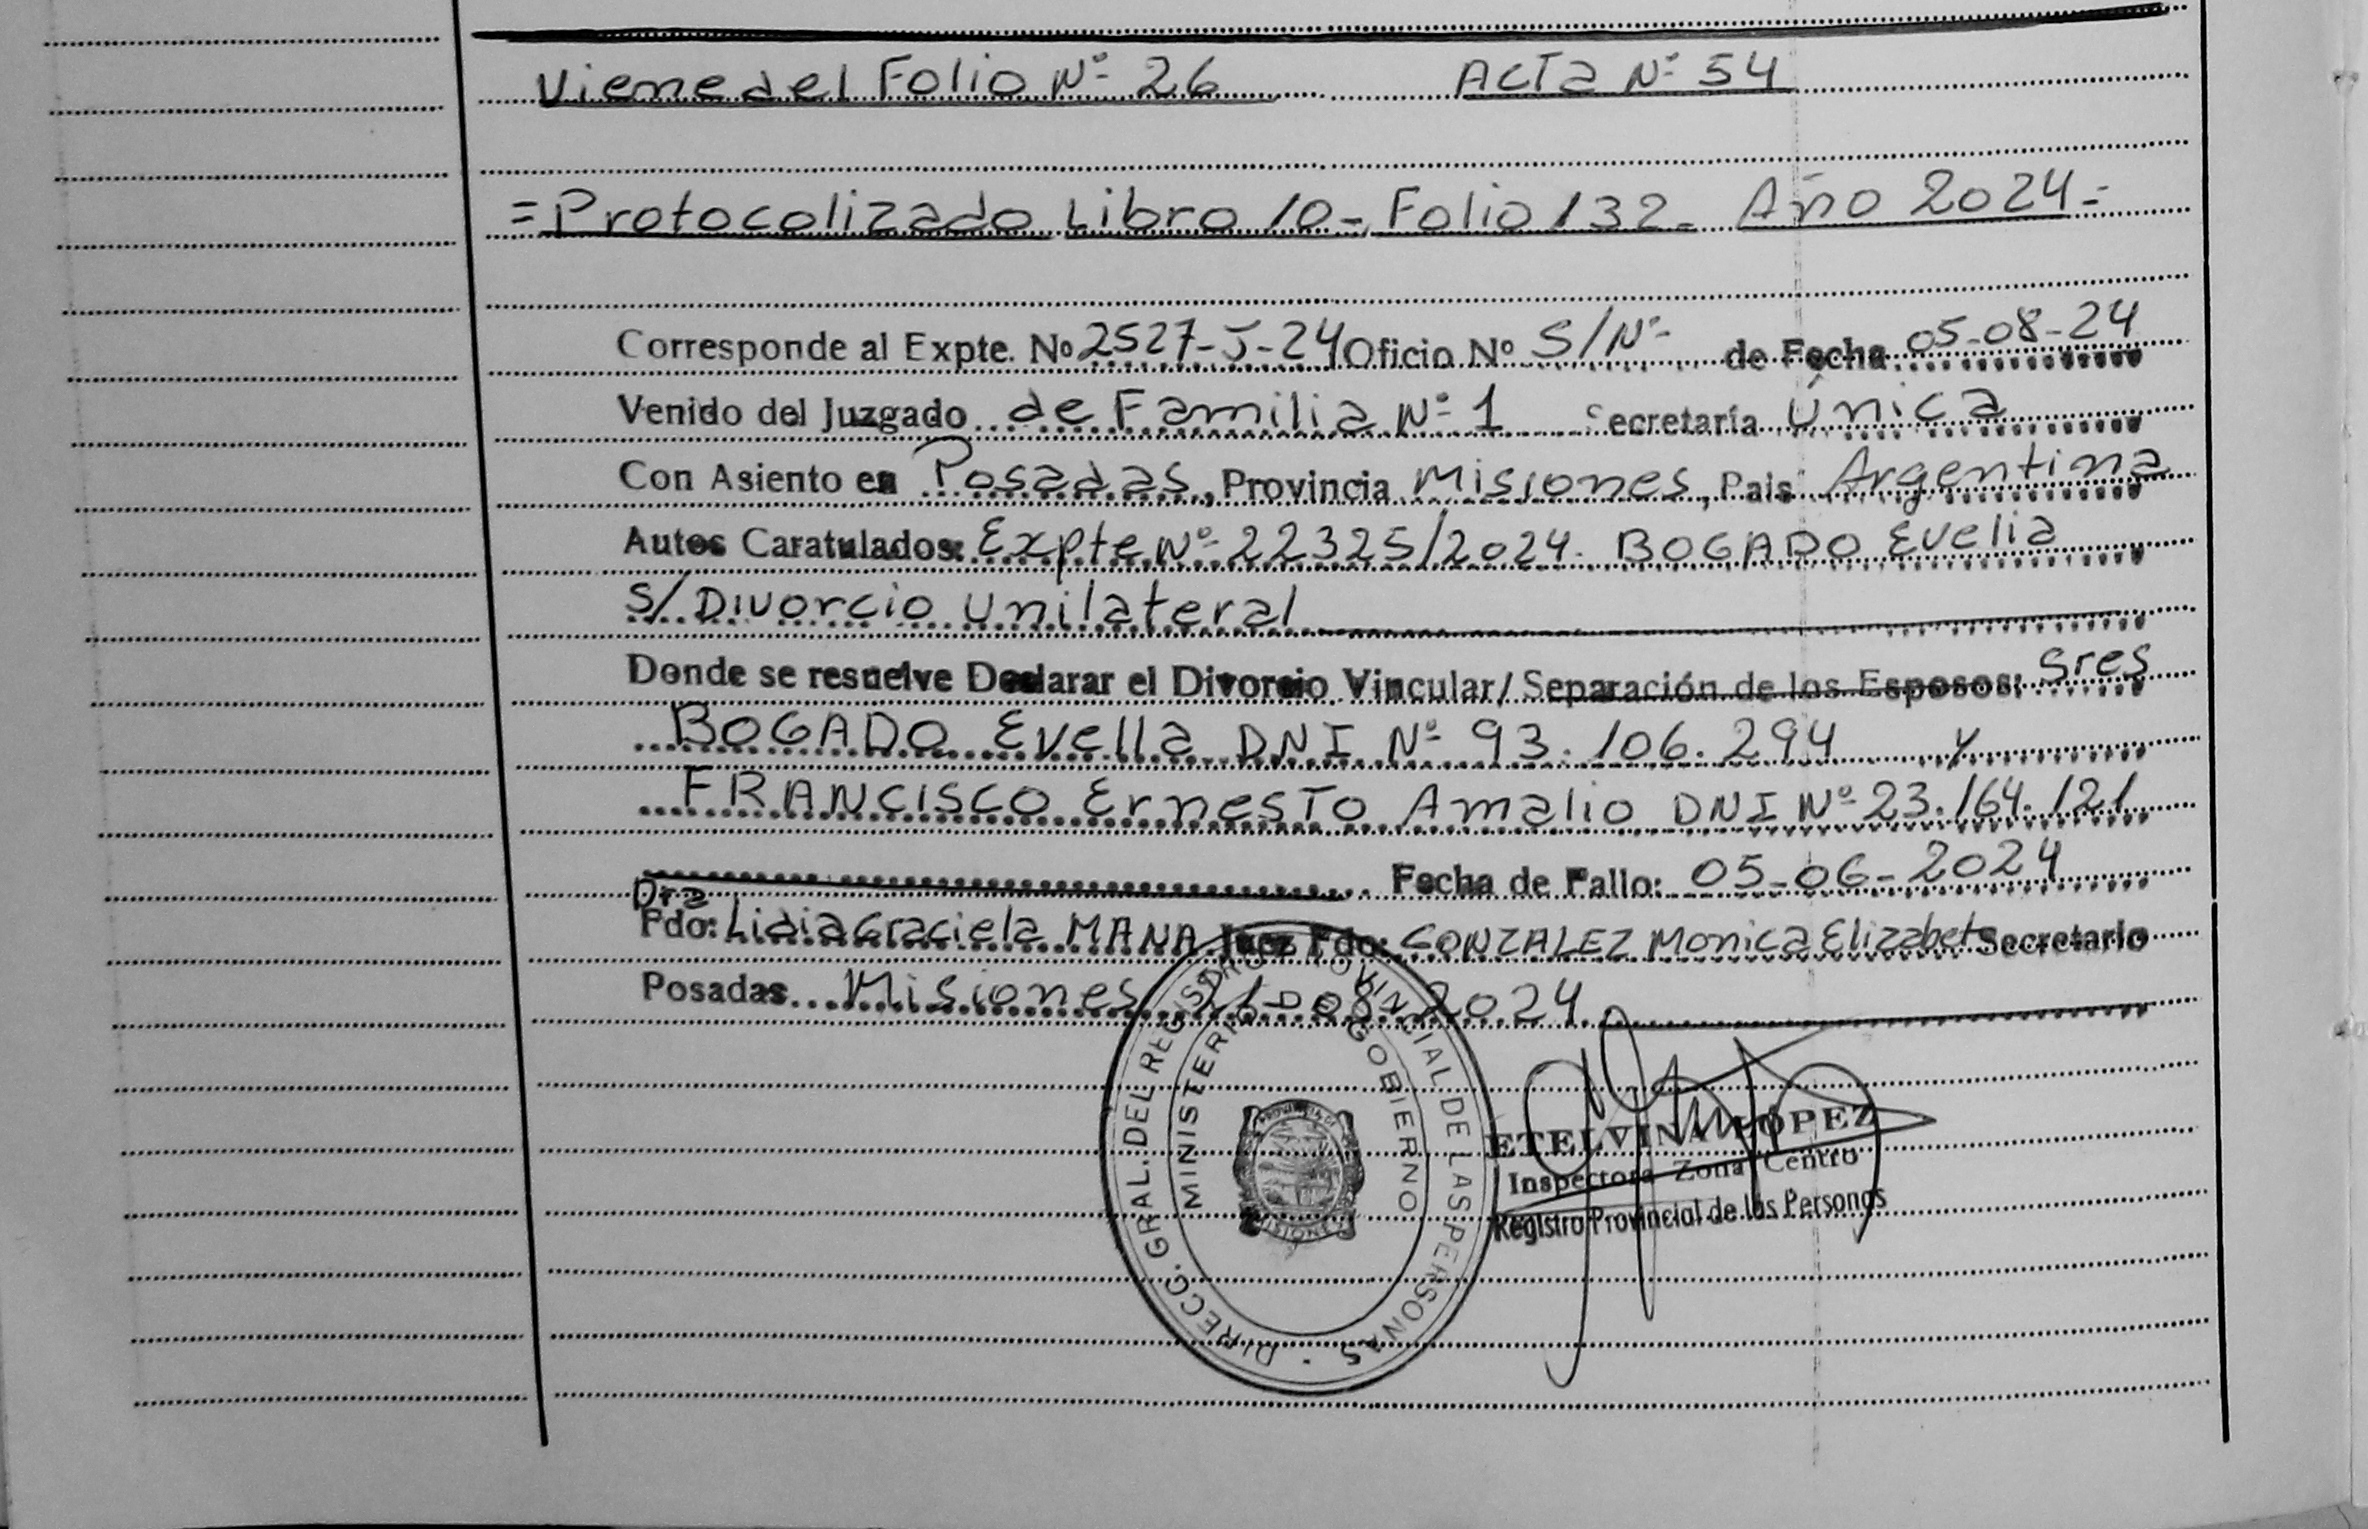 Viene del Folio Nº 26 Acta Nº 54
= Protocolizado Libro 10 - Folio 132 - Año 2024 =
Corresponde al Expte. Nº 2527-J-24 Oficio Nº S/Nº de Fecha 05-08-24
Venido del Juzgado de Familia Nº 1 Secretaría Única
Con Asiento en Posadas, Provincia Misiones, Pais Argentina
Autos Caratulados: Expte Nº 22325/2024. BOGADO Evelia
S/ Divorcio Unilateral
Donde se resuelve Declarar el Divorcio Vincular/ Separación de los Esposos: Sres
BOGADO Evelia DNI Nº 93.106.294 y
FRANCISCO Ernesto Amalio DNI Nº 23.164.121
Fecha de Fallo: 05-06-2024
Dra
Fdo: Lidia Graciela MANA Juez Fdo: GONZALEZ Monica Elizabet Secretario
Posadas Misiones 21-08-2024
DIRECC. GRAL. DEL REGISTRO PROVINCIAL DE LAS PERSONAS
MINISTERIO DE GOBIERNO
PROVINCIA DE
MISIONES
ETELVINA LÓPEZ
Inspectora Zona Centro
Registro Provincial de las Personas